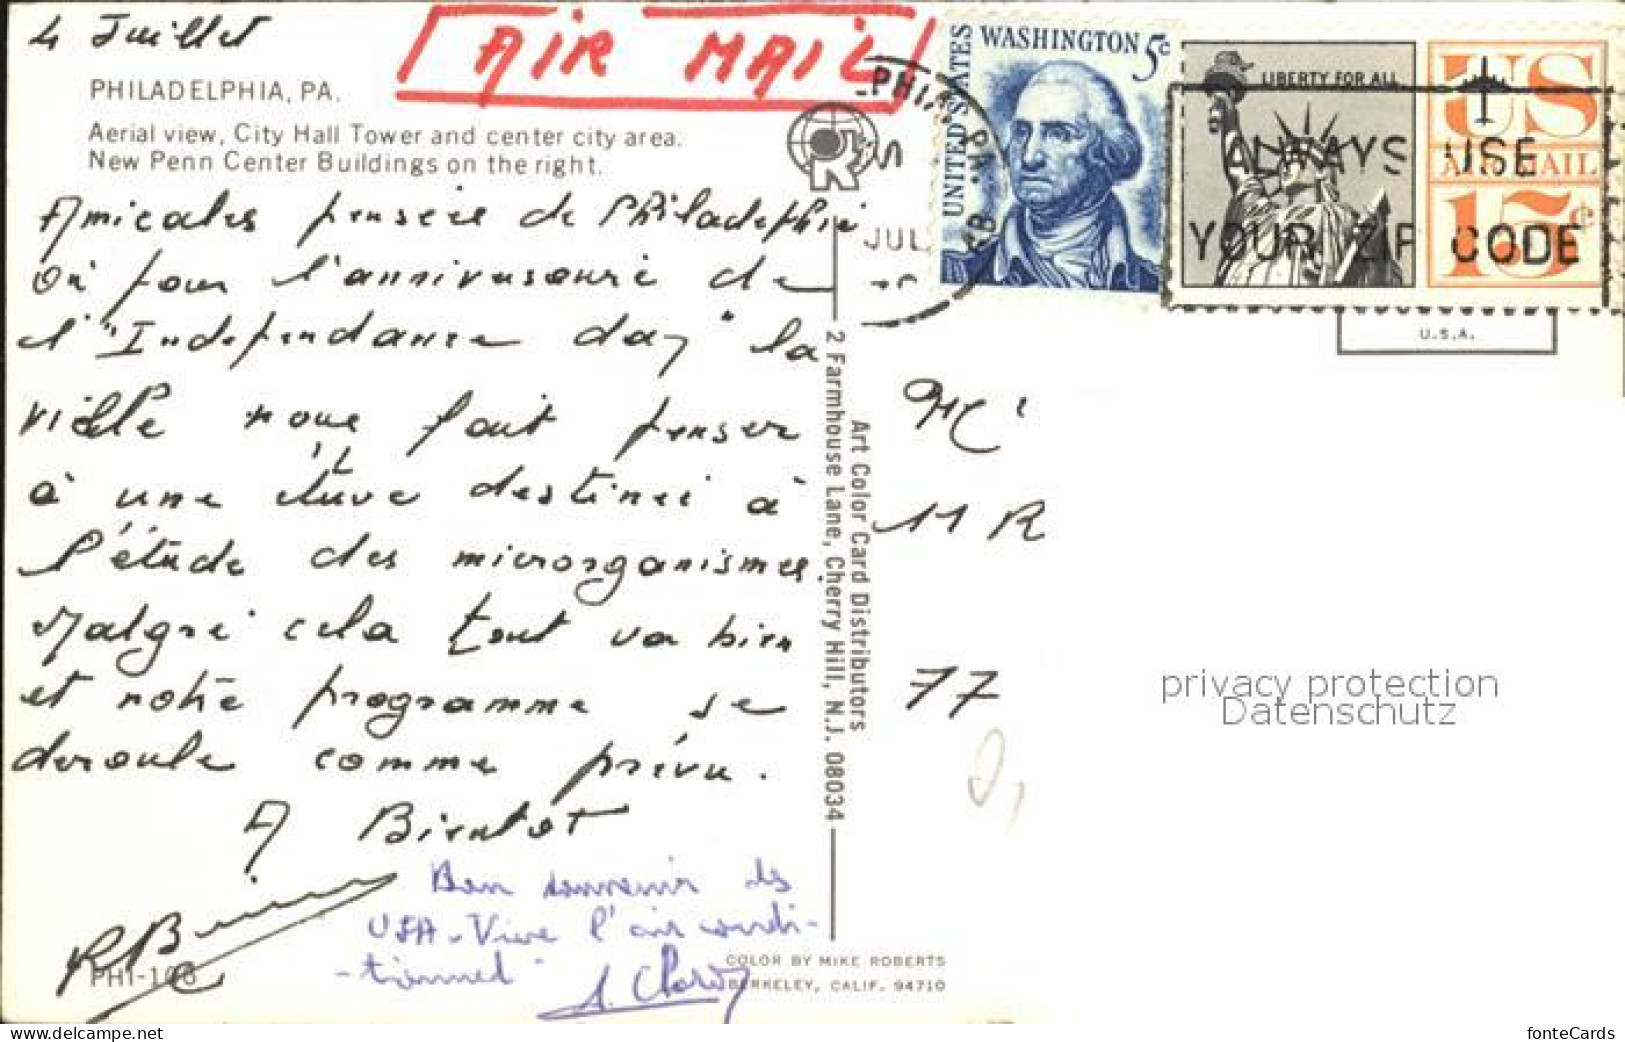 4 Juillet
AIR MAIL
PHILADELPHIA, PA.
Aerial view, City Hall Tower and center city area.
New Penn Center Buildings on the right.
Amicales pensées de Philadelphie
Où pour l'anniversaire de
l'"Independance day" la
ville nous fait penser
à une étuve destinée à
l'étude des microorganismes.
Malgré cela tout va bien
et notre programme se
deroule comme prévu.
A Bientot
Bon souvenir des
USA - Vive l'air condi-
-tionned
PHI-108
2 Farmhouse Lane, Cherry Hill, N.J. 08034
Art Color Card Distributors
COLOR BY MIKE ROBERTS
BERKELEY, CALIF. 94710
UNITED STATES
WASHINGTON 5c
LIBERTY FOR ALL
US
AIR MAIL
15c
PHI
PM
JUL
ALWAYS USE
YOUR ZIP CODE
U.S.A.
11 R
77
privacy protection
Datenschutz
www.delcampe.net
fonteCards